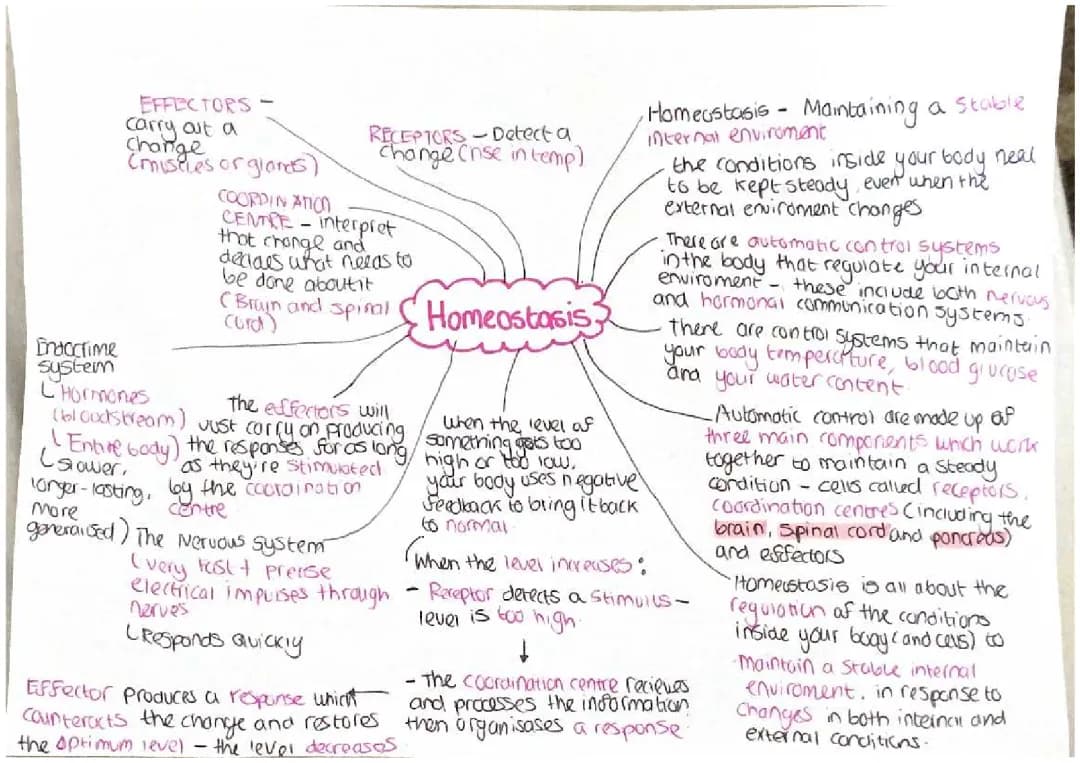 EFFECTORS -
carry out a
change
(muscles or glands)
RECEPTORS - Detect a
change (rise in temp)
Homeostasis - Maintaining a stable
internal enviroment
the conditions inside your body need
to be kept steady, even when the
external enviroment changes
COORDINATION
CENTRE - interpret
that change and
decides what needs to
be done about it
(Brain and spinal
cord)
There are automatic control systems
in the body that regulate your internal
enviroment - these include both nervous
and hormonal communication systems.
Homeostasis
there are control systems that maintain
your body temperature, blood glucose
and your water content.
Endocrine
system
Hormones
(bloodstream)
Entire body)
slower,
longer-lasting,
more
generalised)
the effectors will
Just carry on producing
the responses for as long
as they're stimulated
by the coordination
centre
when the level of
something gets too
high or too low,
your body uses negative
feedback to bring it back
to normal.
Automatic control are made up of
three main components which work
together to maintain a steady
condition - cells called receptors,
coordination centres (including the
brain, spinal cord and pancreas)
and effectors
The Nervous system
(very fast + precise
electrical impulses through
nerves
Responds quickly
When the level increases:
- Receptor detects a stimulus -
level is too high.
- the coordination centre recieves
and processes the information
then organisases a response.
Effector produces a response which
counteracts the change and restores
the optimum level - the level decreases
Homeostasis is all about the
regulation of the conditions
inside your body (and cells) to
maintain a stable internal
enviroment, in response to
changes in both internal and
external conditions.